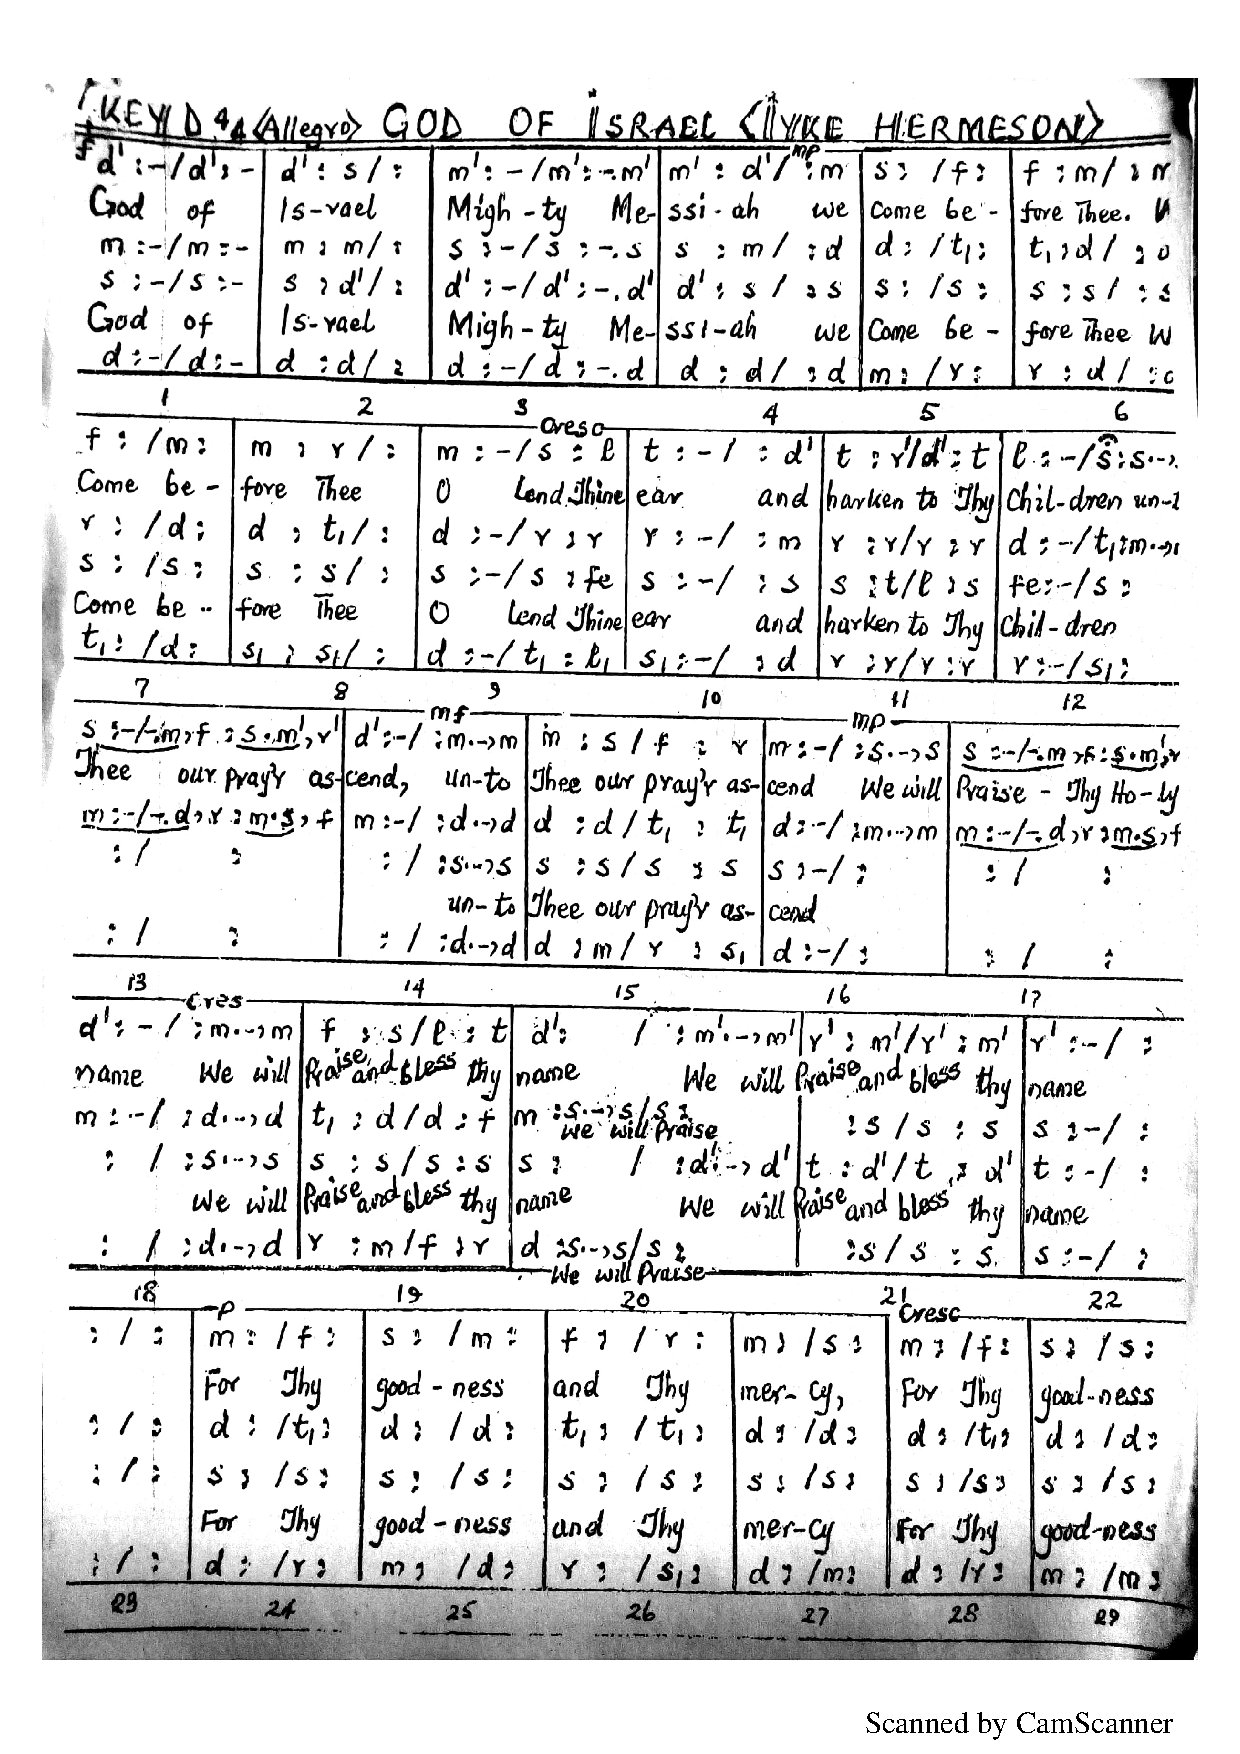 KEY D 4/4 <Allegro> GOD OF ISRAEL <IYKE HERMESON>
f mp
d' :-/d' :- | d' : s / : | m' :-/m' :-.m' | m' : d'/ :m | s : /f : | f : m/ :
God of | Is-rael | Migh-ty Me- | ssi-ah we | Come be- | fore Thee.
m :-/m :- | m : m/ : | s :-/s :-.s | s : m / :d | d : /t₁ : | t₁ : d/ :
s :-/s :- | s : d'/ : | d' :-/d' :-.d' | d' : s / :s | s : /s : | s : s/ :s
God of | Is-rael | Migh-ty Me- | ssi-ah we | Come be- | fore Thee
d :-/d :- | d : d/ : | d :-/d :-.d | d : d/ :d | m : /r : | r : d/ :
1 2 3 4 5 6
Cresc
f : /m : | m : r / : | m :-/s : l | t :-/ : d' | t : r'/d' : t | l :-/s :s.-,
Come be- | fore Thee | O lend Thine | ear and | harken to Thy | Chil-dren un-
r : /d : | d : t₁/ : | d :-/r : r | r :-/ : m | r : r/r : r | d :-/t₁ :m.-,
s : /s : | s : s/ : | s :-/s : fe | s :-/ : s | s : t/l : s | fe :-/s :
Come be-- | fore Thee | O lend Thine | ear and | harken to Thy | Chil-dren
t₁ : /d : | s₁ : s₁/ : | d :-/t₁ : l₁ | s₁ :-/ : d | r : r/r : r | r :-/s₁ :
7 8 9 10 11 12
mf mp
s :-/-.m,f : s.m',r' | d' :-/ :m.-,m | m : s / f : r | m :-/ :s.-,s | s :-/-.m,f : s.m',r
Thee our pray'r as- | cend, un-to | Thee our pray'r as- | cend We will | Praise - Thy Ho-ly
m :-/-.d,r : m.s,f | m :-/ :d.-,d | d : d / t₁ : t₁ | d :-/ :m.-,m | m :-/-.d,r : m.s,f
: / : | : / :s.-,s | s : s / s : s | s :-/ : | : / :
un-to | Thee our pray'r as- | cend
: / : | : / :d.-,d | d : m / r : s₁ | d :-/ : | : / :
13 14 15 16 17
Cres
d' :-/ :m.-,m | f : s/l : t | d' : / :m'.-,m' | r' : m'/r' : m' | r' :-/ :
name We will | Praise and bless thy | name We will | Praise and bless thy | name
m :-/ :d.-,d | t₁ : d/d : f | m :s.-,s/s : | :s / s : s | s :-/ :
We will Praise
: / :s.-,s | s : s/s : s | s : / :d'.-,d' | t : d'/t : d' | t :-/ :
We will | Praise and bless thy | name We will | Praise and bless thy | name
: / :d.-,d | r : m/f : r | d :s.-,s/s : | :s / s : s | s :-/ :
We will Praise
18 19 20 21 22
p Cresc
: / : | m : /f : | s : /m : | f : / r : | m : /s : | m : /f : | s : /s :
For Thy | good-ness | and Thy | mer-cy, | For Thy | good-ness
: / : | d : /t₁ : | d : /d : | t₁ : /t₁ : | d : /d : | d : /t₁ : | d : /d :
: / : | s : /s : | s : /s : | s : /s : | s : /s : | s : /s : | s : /s :
For Thy | good-ness | and Thy | mer-cy | For Thy | good-ness
: / : | d : /r : | m : /d : | r : /s₁ : | d : /m : | d : /r : | m : /m :
23 24 25 26 27 28 29
Scanned by CamScanner